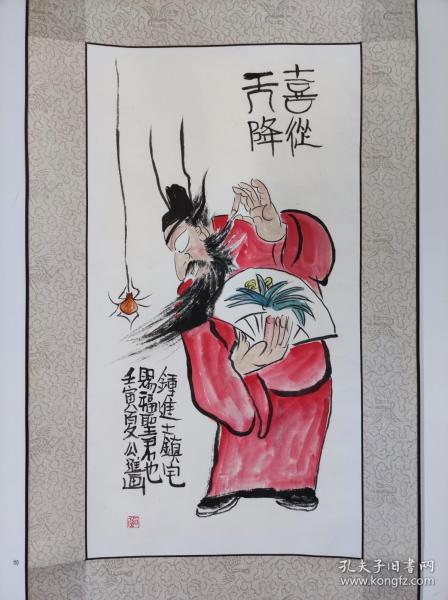 喜從
天降
鍾進士鎮宅
賜福聖君也
壬寅夏公画
孔夫子旧书网
www.kongfz.com